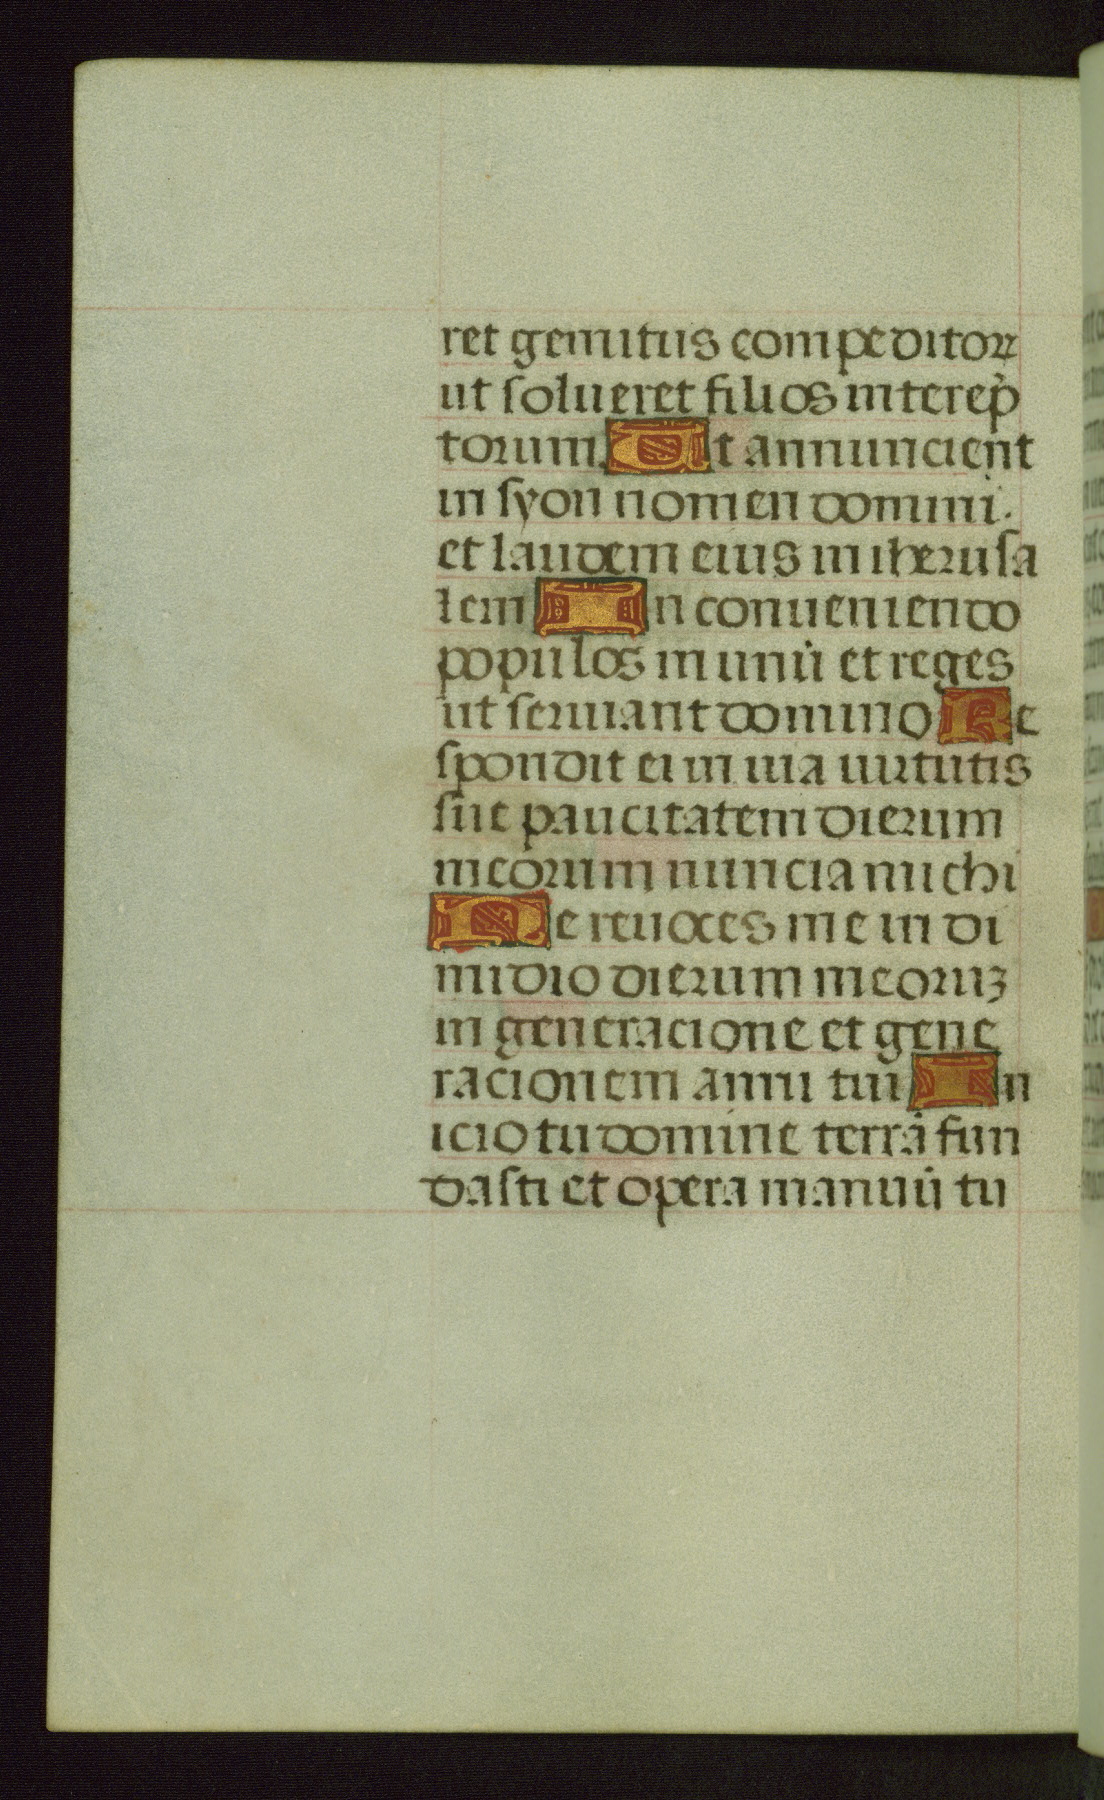 ret gemitus compeditoꝝ
ut solueret filios interep̓
torum Ut annuncient
in syon nomen domini.
et laudem eius in iherusa
lem In conueniendo
populos in unū et reges
ut seruiant domino Re
spondit ei in uia uirtutis
sue paucitatem dierum
meorum nuncia michi
Ne reuoces me in di
midio dierum meoruꝫ
in generacione et gene
racionem anni tui In
icio tu domine terrā fun
dasti et opera manuū tu